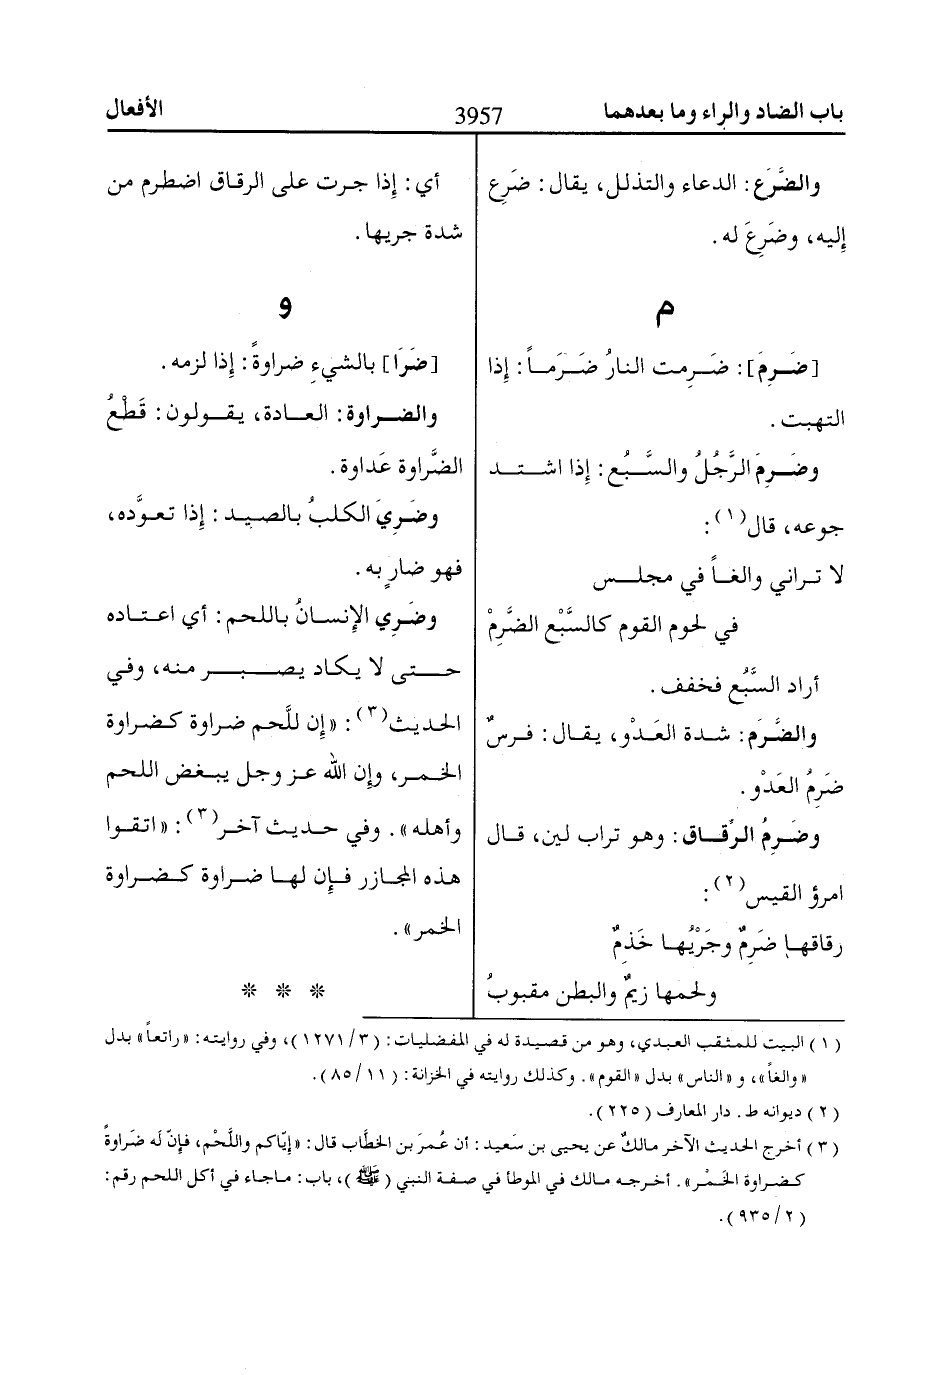 باب الضاد والراء وما بعدهما
3957
الأفعال
والضَّرَع: الدعاء والتذلل، يقال: ضَرِع
إليه، وضَرِعَ له.
م
[ضَرِمَ]: ضَرِمت النارُ ضَرَماً: إذا
التهبت.
وضَرِمَ الرَّجُلُ والسَّبُع: إذا اشتد
جوعه، قال(١):
لا تراني والغاً في مجلس
في لحوم القوم كالسَّبْع الضَّرِمْ
أراد السَّبُع فخفف.
والضَّرَم: شدة العَدْو، يقال: فرسٌ
ضَرِمُ العَدْو.
وضَرِمُ الرَّقاق: وهو تراب لين، قال
امرؤ القيس(٢):
رقاقها ضَرِمٌ وجَرْيُها خَذِمٌ
ولحمها زِيمٌ والبطن مقبوبُ
أي: إذا جرت على الرقاق اضطرم من
شدة جريها.
و
[ضَرَا] بالشيءِ ضراوةً: إذا لزمه.
والضراوة: العادة، يقولون: قَطْعُ
الضَّراوة عَداوة.
وضَرِيَ الكلبُ بالصيد: إذا تعوَّده،
فهو ضارٍ به.
وضَرِي الإنسانُ باللحم: أي اعتاده
حتى لا يكاد يصبر منه، وفي
الحديث(٣): «إن للَّحم ضراوة كضراوة
الخمر، وإن الله عز وجل يبغض اللحم
وأهله». وفي حديث آخر(٣): «اتقوا
هذه المجازر فإن لها ضراوة كضراوة
الخمر».
* * *
(١) البيت للمثقب العبدي، وهو من قصيدة له في المفضليات: (٣/١٢٧١)، وفي روايته: «راتعاً» بدل
«والغاً»، و«الناس» بدل «القوم». وكذلك روايته في الخزانة: (١١/٨٥).
(٢) ديوانه ط. دار المعارف (٢٢٥).
(٣) أخرج الحديث الآخر مالكٌ عن يحيى بن سَعيد: أن عُمرَ بن الخطَّاب قال: «إيّاكم واللَّحْم، فإنّ لَه ضَراوةً
كضراوة الخَمْر». أخرجه مالك في الموطأ في صفة النبي (ﷺ)، باب: ماجاء في أكل اللحم رقم:
(٢/٩٣٥).